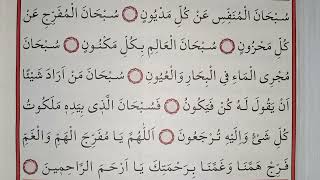 سُبْحَانَ الْمُنَفِّسِ عَنْ كُلِّ مَدْيُونٍ ۞ سُبْحَانَ الْمُفَرِّجِ عَنْ
كُلِّ مَحْزُونٍ ۞ سُبْحَانَ الْعَالِمِ بِكُلِّ مَكْنُونٍ ۞ سُبْحَانَ
مُجْرِى الْمَاءِ فِى الْبِحَارِ وَالْعُيُونِ ۞ سُبْحَانَ مَنْ اِذَا اَرَادَ شَيْئًا
اَنْ يَقُولَ لَهُ كُنْ فَيَكُونُ ۞ فَسُبْحَانَ الَّذِى بِيَدِهِ مَلَكُوتُ
كُلِّ شَىْءٍ وَاِلَيْهِ تُرْجَعُونَ ۞ اَللّٰهُمَّ يَا مُفَرِّجَ الْهَمِّ وَالْغَمِّ
فَرِّجْ هَمَّنَا وَغَمَّنَا بِرَحْمَتِكَ يَا اَرْحَمَ الرَّاحِمِينَ ۞